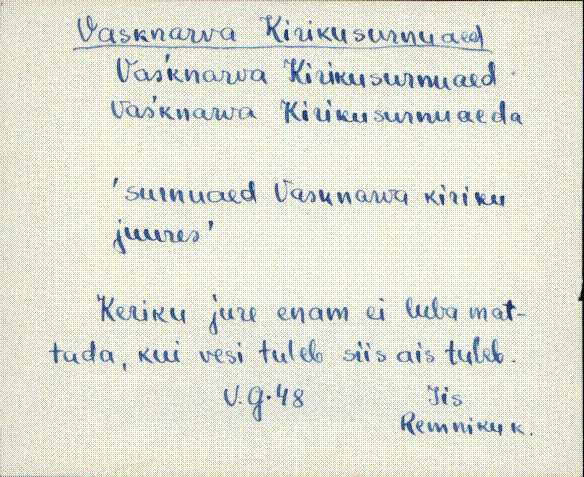 Vasknarva Kirikusurnuaed
Vas'knarva Kirikusurnuaed
Vas'knarva Kirikusurnuaeda
'surnuaed Vasknarva kiriku
juures'
Keriku jure enam ei luba mat-
tada, kui vesi tuleb siis ais tuleb.
V.G.48 Iis
Remniku k.